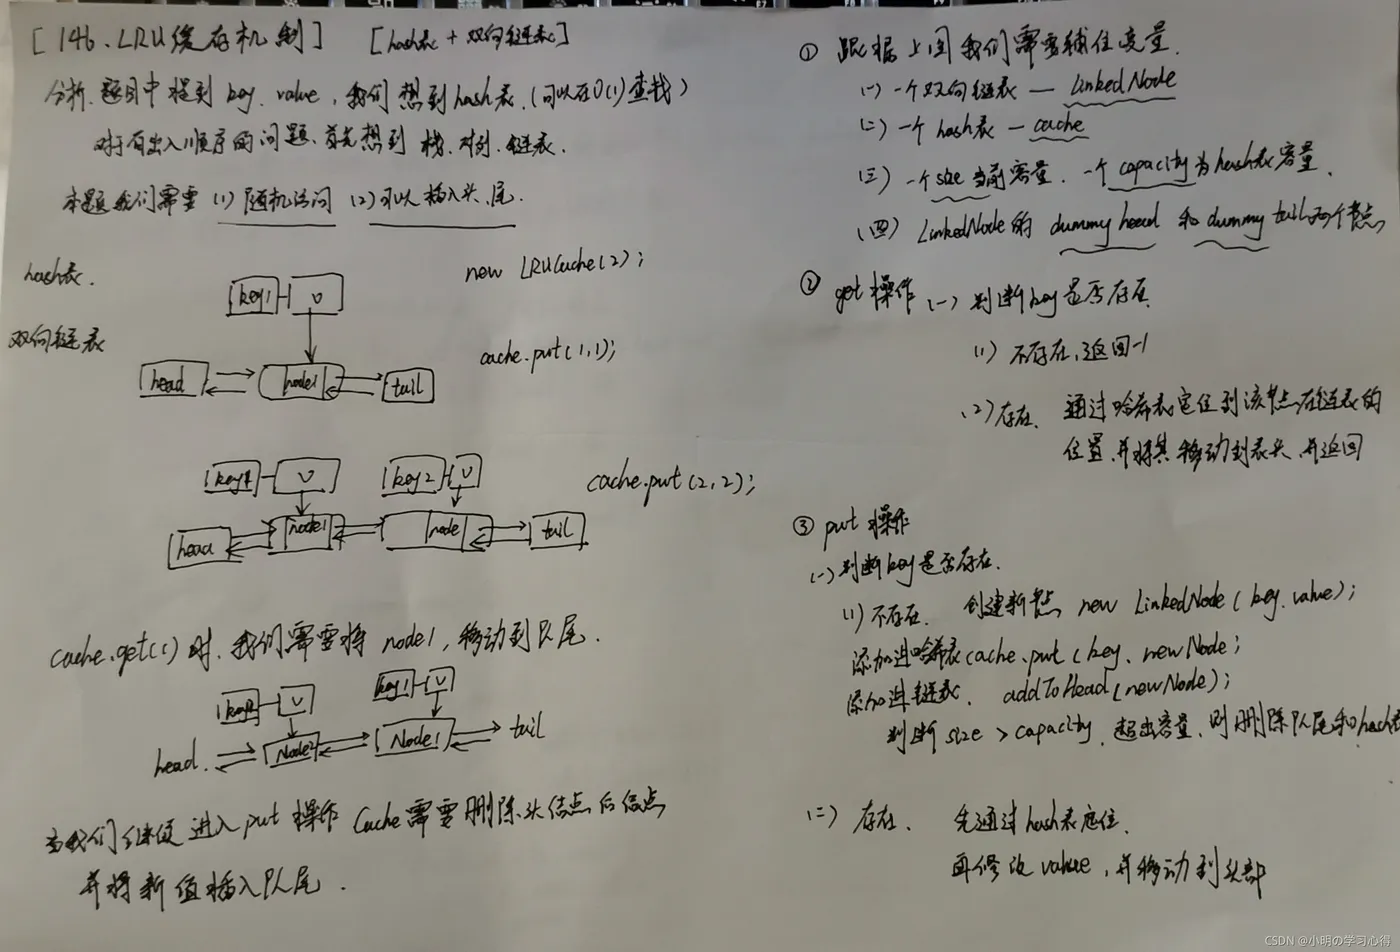 [146.LRU缓存机制] [hash表 + 双向链表]
分析.题目中提到key.value,我们想到hash表.(可以在O(1)查找)
对于有出入顺序的问题.首先想到 栈.队列.链表.
本题我们需要 (1)随机访问 (2)可以插入头.尾.
hash表.
new LRUCache(2);
key1 v
双向链表
cache.put(1,1);
head node1 tail
key1 v key2 v
cache.put(2,2);
head node1 node tail
cache.get(1)时.我们需要将 node1,移动到队尾.
key2 v key1 v
head. Node2 Node1 tail
当我们继续进入put操作 Cache需要删除头结点后结点
并将新值插入队尾.
① 跟据上图我们需要辅住变量.
(一) 一个双向链表 — LinkedNode
(二) 一个hash表 — cache
(三) 一个size当前容量. 一个capacity为hash表容量.
(四) LinkedNode的 dummy head 和 dummy tail两个节点
② get操作 (一) 判断key是否存在
(1) 不存在,返回-1
(2)存在. 通过哈希表定位到该节点在链表的
位置.并将其移动到表头.并返回
③ put操作
(一)判断key是否存在.
(1)不存在. 创建新节点 new LinkedNode(key.value);
添加进哈希表cache.put(key.newNode;
添加进链表. addToHead(newNode);
判断 size > capacity.超出容量.则删除队尾和hash表
(二) 存在. 先通过hash表定位.
再修改value,并移动到头部
CSDN @小明の学习心得